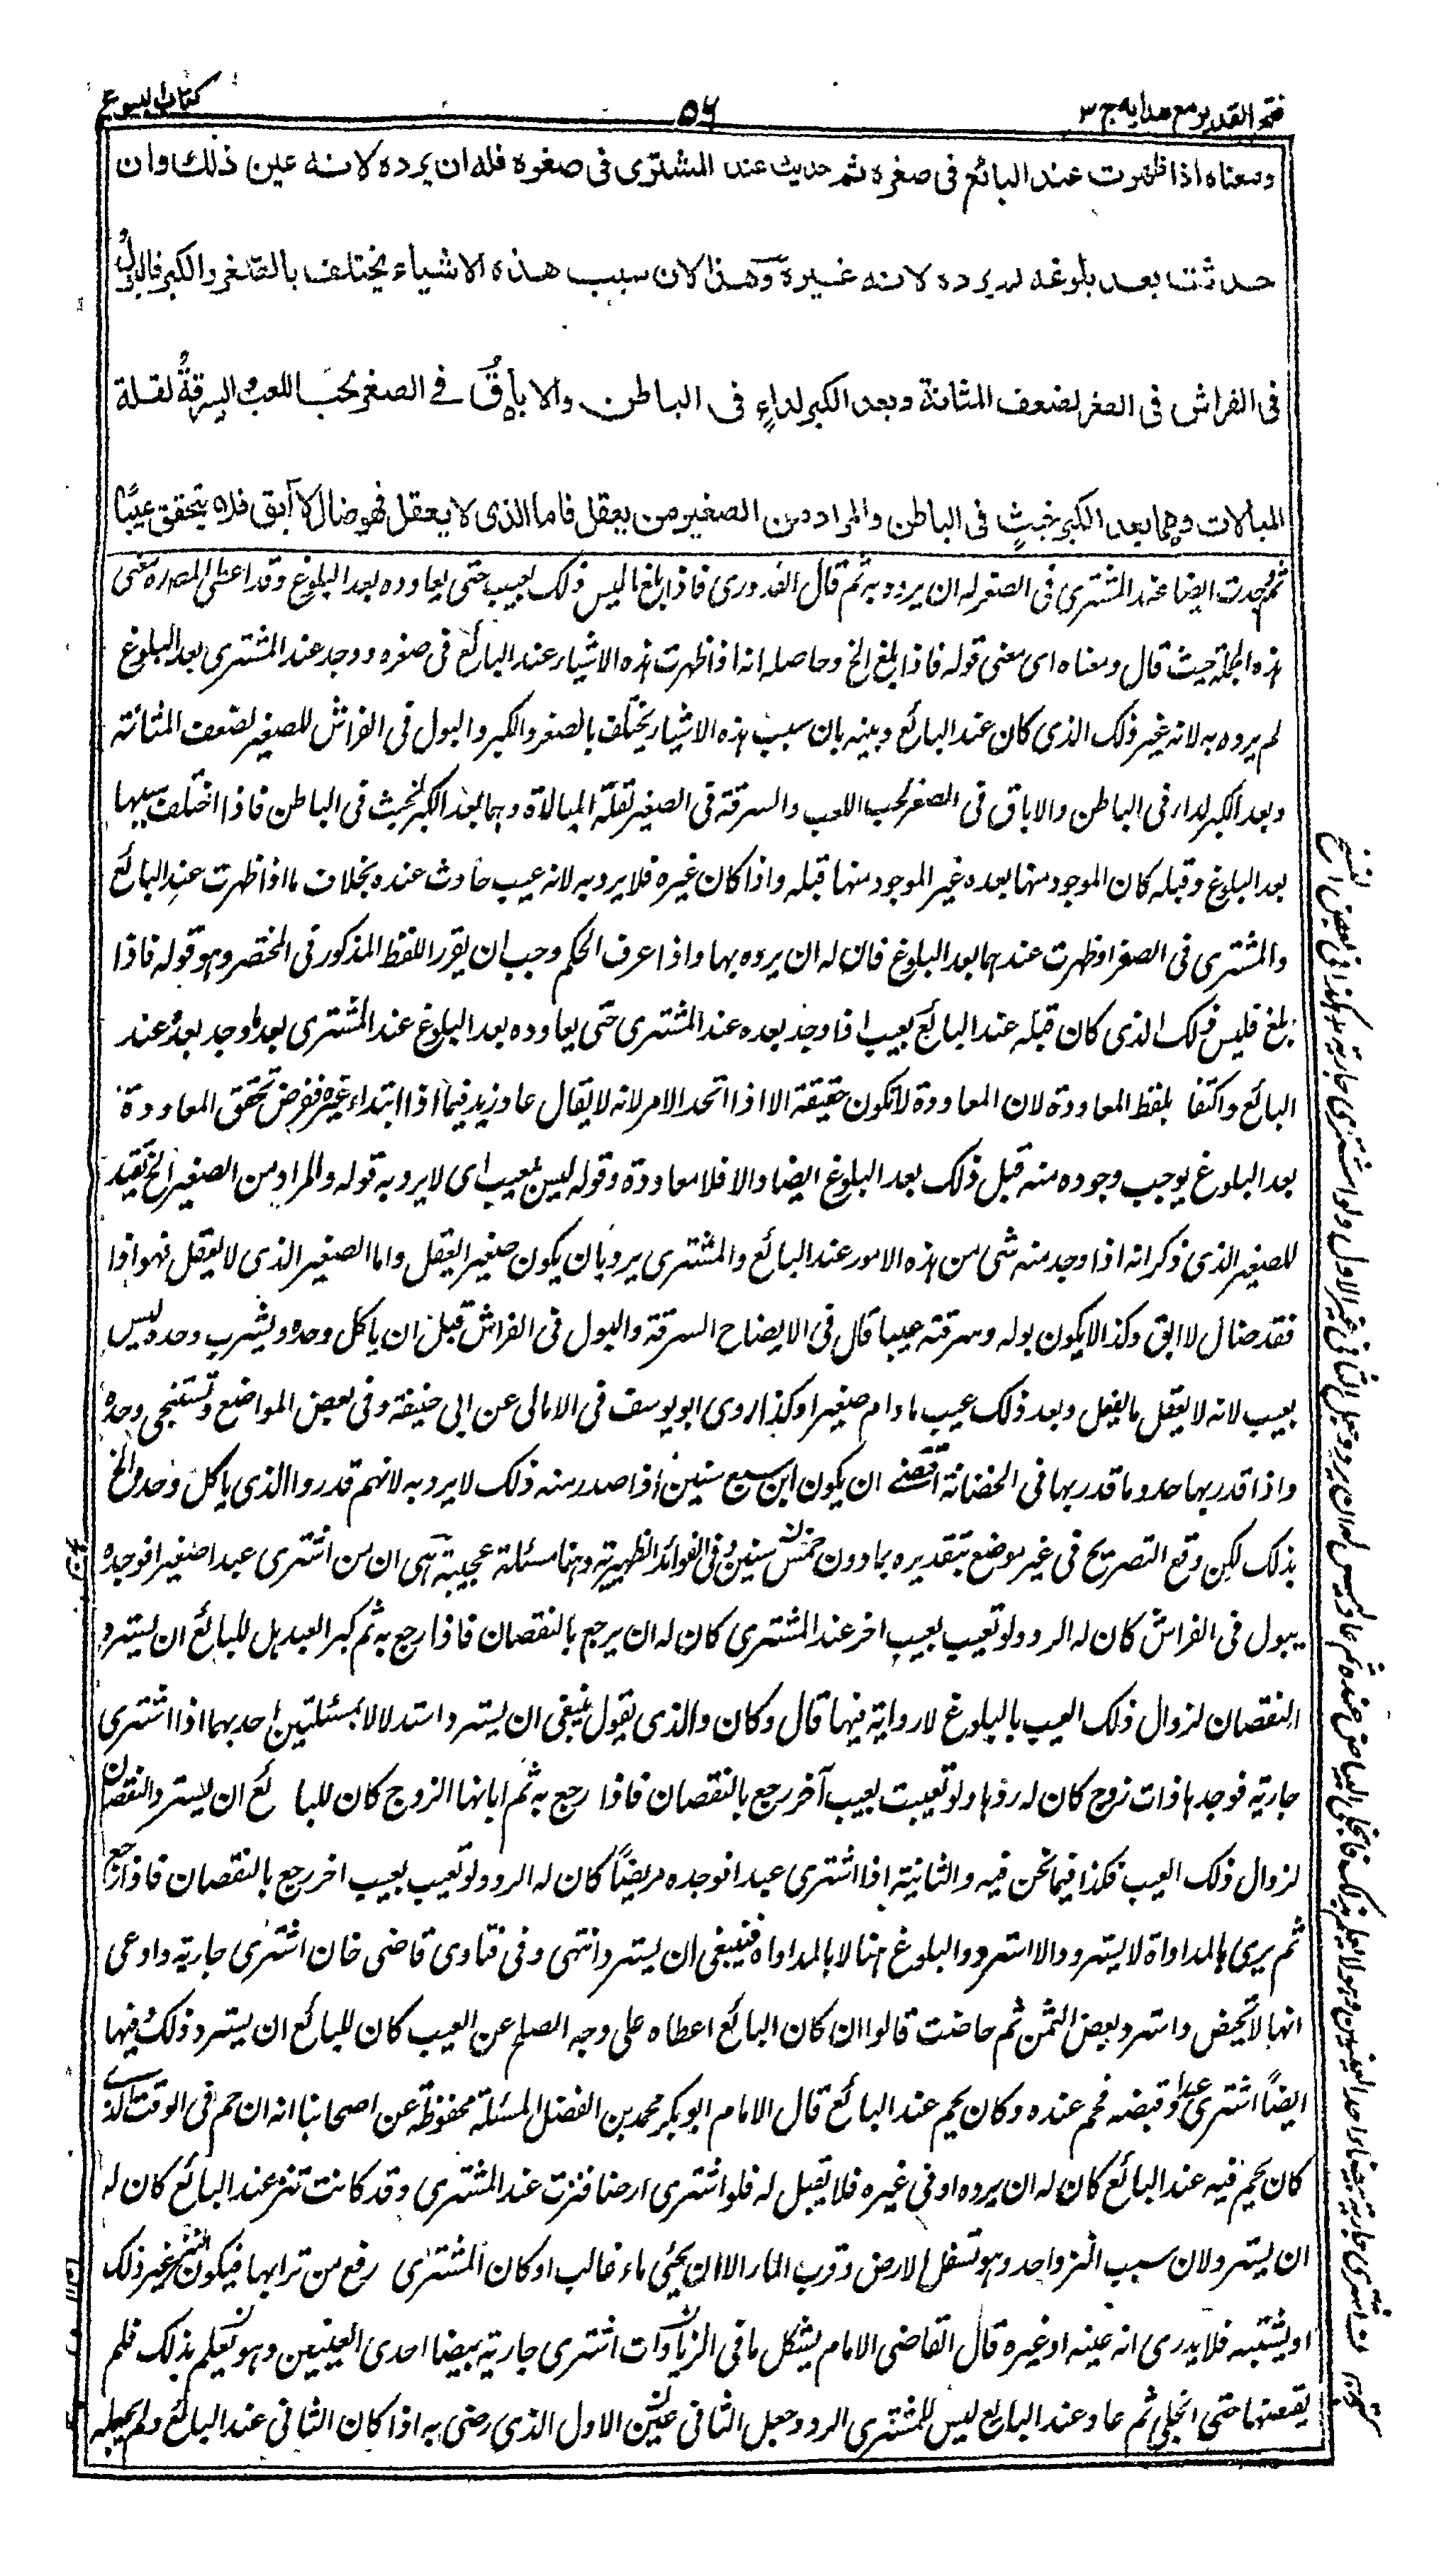 فتح القدير مع هدايه ج ٣
٥٦
كتاب البيوع
ومعناه اذا ظهرت عند البائع فى صغره ثم حديث عند المشترى فى صغره فله ان يرده لانه عين ذلك وان
حدثت بعد بلوغه لم يرده لانه غيره وهذا لان سبب هذه الاشياء يختلف بالصغر والكبر فالبول
فى الفراش فى الصغر لضعف المثانة وبعد الكبر لداءٍ فى الباطن والاباق فى الصغر لحب اللعب والسرقةُ لقلة
المبالات وهما بعد الكبر لخبثٍ فى الباطن والمراد من الصغير من يعقل فاما الذى لا يعقل فهو ضال لا آبق فلا يتحقق عيبًا
ثم وجدت ايضا عند المشترى فى الصغر له ان يرده به ثم قال القدورى فاذا بلغ فليس ذلك بعيب حتى يعاوده بعد البلوغ وقد اعطى المصره معنى
هذه الجملة حيث قال ومعناه اى معنى قوله فاذا بلغ الخ وحاصله انه اذا ظهرت هذه الاشياء عند البائع فى صغره ووجد عند المشترى بعد البلوغ
لم يرده به لانه غير ذلك الذى كان عند البائع وبينه بان سبب هذه الاشياء يختلف بالصغر والكبر والبول فى الفراش للصغير لضعف المثانة
وبعد الكبر لداء فى الباطن والاباق فى الصغر لحب اللعب والسرقة فى الصغير لقلة المبالاة وهما بعد الكبر لخبث فى الباطن فاذا اختلف سببها
بعد البلوغ وقبله كان الموجود منها بعده غير الموجود منها قبله واذا كان غيره فلا يرد به لانه عيب حادث عنده بخلاف ما اذا ظهرت عند البائع
والمشترى فى الصغر او ظهرت عندهما بعد البلوغ فان له ان يرده بها واذا عرف الحكم وجب ان يقرر اللفظ المذكور فى المختصر وهو قوله فاذا
بلغ فليس ذلك الذى كان قبله عند البائع بعيب اذا وجد بعده عند المشترى حتى يعاوده بعد البلوغ عند المشترى بعد ما وجد بعده عند
البائع واكتفا بلفظ المعاودة لان المعاودة لا تكون حقيقة الا اذا اتحد الامر لانه لا يقال عاد زيد فيما اذا ابتداء غيره ففرض تحقق المعاودة
بعد البلوغ يوجب وجوده منه قبل ذلك بعد البلوغ ايضا والا فلا معاودة وقوله ليس بعيب اى لا يرد به قوله والمراد من الصغير الخ تقيد
للصغير الذى ذكر انه اذا وجد منه شى من هذه الامور عند البائع والمشترى يرد بان يكون صغير العقل واما الصغير الذى لا يعقل فهو اذا
فقد ضال لا ابق وكذا لا يكون بوله وسرقته عيبا قال فى الايضاح السرقة والبول فى الفراش قبل ان ياكل وحده ويشرب وحده ليس
بعيب لانه لا يعقل ما يفعل وبعد ذلك عيب ما دام صغيرا وكذا روى ابو يوسف فى الامالى عن ابى حنيفة وفى بعض المواضع وتستنجى وحده
واذا قدر بها حدوما قدر بها فى الحضانة اقتضى ان يكون ابن سبع سنين اذا صدر منه ذلك لا يرد به لانهم قدروا الذى ياكل وحده الخ
بذلك لكن وقع التصريح فى غير موضع بتقديره بما دون خمس سنين وفى الفوائد الظهيرية وهنا مسئلة عجيبة هى ان من اشترى عبدا صغيرا فوجده
يبول فى الفراش كان له الرد ولو تعيب بعيب اخر عند المشترى كان له ان يرجع بالنقصان فاذا رجع به ثم كبر العبد هل للبائع ان يسترد
النقصان لزوال ذلك العيب بالبلوغ لا رواية فيها قال وكان والذى يقول ينبغى ان يسترد استدلالا بمسئلتين احدهما اذا اشترى
جارية فوجدها ذات زوج كان له ردها ولو تعيبت بعيب آخر رجع بالنقصان فاذا رجع به ثم ابانها الزوج كان للبائع ان يسترد النقصان
لزوال ذلك العيب فكذا فيما نحن فيه والثانية اذا اشترى عبدا فوجده مريضًا كان له الرد ولو تعيب بعيب اخر رجع بالنقصان فاذا رجع
ثم يرى بالمداواة لا يسترد والا استرد والبلوغ هنا لا بالمداواه فينبغى ان يسترد انتهى وفى فتاوى قاضى خان اشترى جارية وادعى
انها لا تحيض واسترد بعض الثمن ثم حاضت قالوا ان كان البائع اعطاه على وجه الصلح عن العيب كان للبائع ان يسترد ذلك وفيها
ايضًا اشترى عبدا وقبضه فحم عنده وكان يحم عند البائع قال الامام ابو بكر محمد بن الفضل المسئلة محفوظة عن اصحابنا انه ان حم فى الوقت الذے
كان يحم فيه عند البائع كان له ان يرده او فى غيره فلا يقبل له فلو اشترى ارضا فنزت عند المشترى وقد كانت تنز عند البائع كان له
ان يسترد لان سبب النز واحد وهو تسفل الارض وقرب الماء الا ان يجئى ماء غالب او كان المشترى رفع من ترابها فيكون النز غير ذلك
او يشتبه فلا يدرى انه عينه او غيره قال القاضى الامام يشكل ما فى الزيادات اشترى جارية بيضا احدى العينين وهو يعلم بذلك فلم
يقبضها حتى انجلى ثم عاد عند البائع ليس للمشترى الرد وجعل الثانى عين الاول الذى رضى به اذا كان الثانى عند البائع ولم يجعله